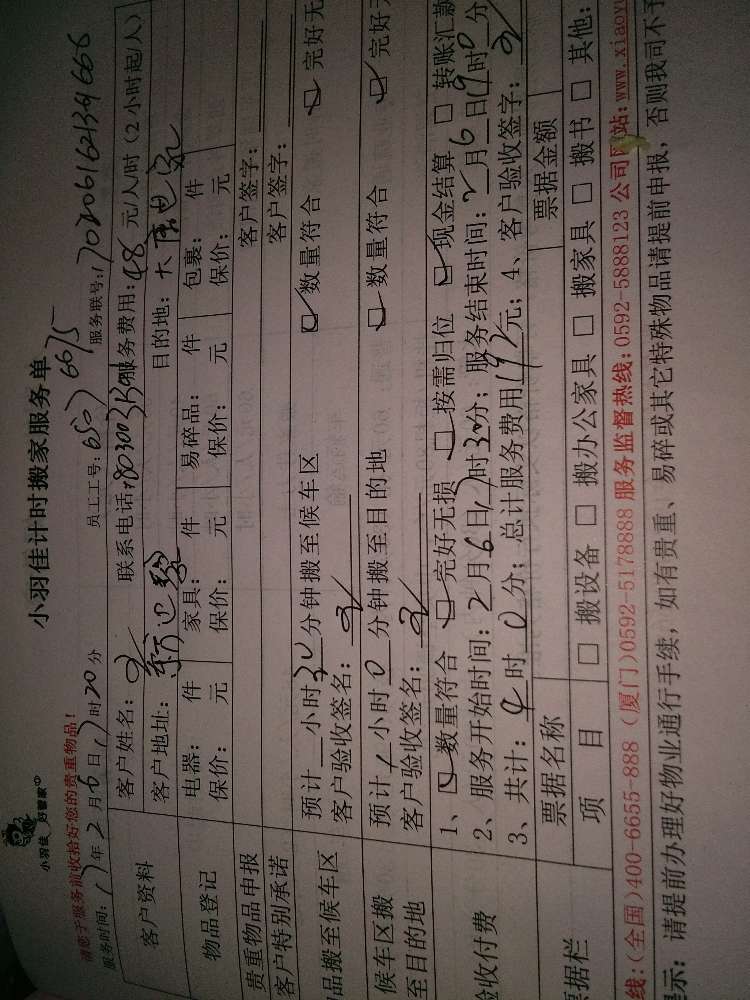 小羽佳 好管家
小羽佳计时搬家服务单
请您于服务前收拾好您的贵重物品!
服务时间: 年2月6日 时20分 员工工号: 6675 服务联号:
客户资料
客户姓名: 联系电话: 服务费用:48元/人/时(2小时起/人)
客户地址: 目的地:
物品登记
电器: 件 家具: 件 易碎品: 件 包裹: 件
保价: 元 保价: 元 保价: 元 保价: 元
贵重物品申报 客户签字:
客户特别承诺 客户签字:
品搬至候车区
预计 小时30分钟搬至候车区 数量符合 完好无
客户验收签名:
候车区搬
至目的地
预计1小时0分钟搬至目的地 数量符合 完好无
客户验收签名:
验收付费
1、 数量符合 完好无损 按需归位 现金结算 转账汇款
2、服务开始时间:2月6日 时30分;服务结束时间:2月6日 时0分
3、共计:4时0分;总计服务费用192元;4、客户验收签字:
票据栏
票据名称 票据金额
项 目 搬设备 搬办公家具 搬家具 搬书 其他:
线:(全国)400-6655-888 (厦门)0592-5178888 服务监督热线:0592-5888123 公司网站:www.xiaoyu
示:请提前办理好物业通行手续,如有贵重、易碎或其它特殊物品请提前申报,否则我司不予